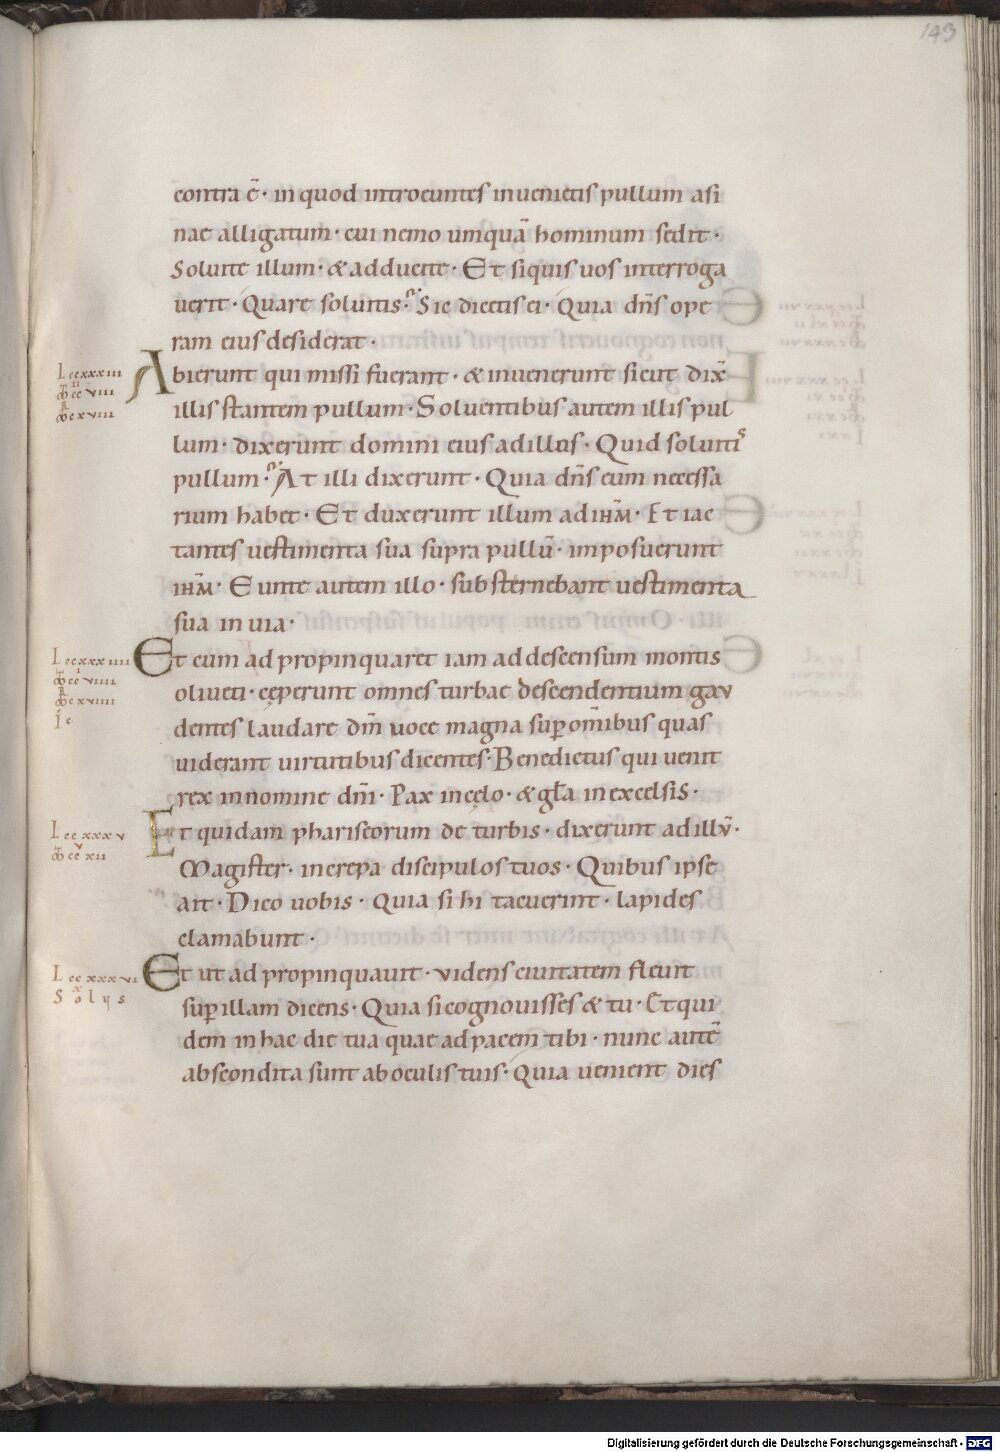 143
contra ē· in quod introeuntes inuenietis pullum asi
nae alligatum· cui nemo umquā hominum sedit·
Soluite illum· & adducite· Et siquis uos interroga
uerit· Quare soluitis· Sic dicetis ei· Quia dn̄s ope
ram eius desiderat·
Lccxxxiii
Abierunt qui missi fuerant· & inuenerunt sicut dix̄
illis stantem pullum· Soluentibus autem illis pul
lum· dixerunt domini eius ad illos· Quid soluitis
pullum· At illi dixerunt· Quia dn̄s eum necessa
rium habet· Et duxerunt illum ad ihm̄· Et iac
tantes uestimenta sua supra pullū· imposuerunt
ihm̄· Eunte autem illo· substernebant uestimenta
sua in uia·
Lccxxxiiii
Et cum adpropinquaret iam ad descensum montis
oliueti· ceperunt omnes turbae descendentium gau
dentes laudare dm̄ uoce magna sup om̄ibus quas
uiderant uirtutibus dicentes· Benedictus qui uenit
rex in nomine dm̄i· Pax in celo· & gl̄a in excelsis·
Lccxxxv
Et quidam phariseorum de turbis· dixerunt ad illū·
Magister· increpa discipulos tuos· Quibus ipse
ait· Dico uobis· quia si hi tacuerint· lapides
clamabunt·
Lccxxxvi
Solus
Et ut adpropinquauit· uidens ciuitatem fleuit
sup illam dicens· Quia si cognouisses & tu· Et qui
dem in hac die tua quae ad pacem tibi· nunc autē
abscondita sunt ab oculis tuis· Quia uenient dies
Digitalisierung gefördert durch die Deutsche Forschungsgemeinschaft - DFG